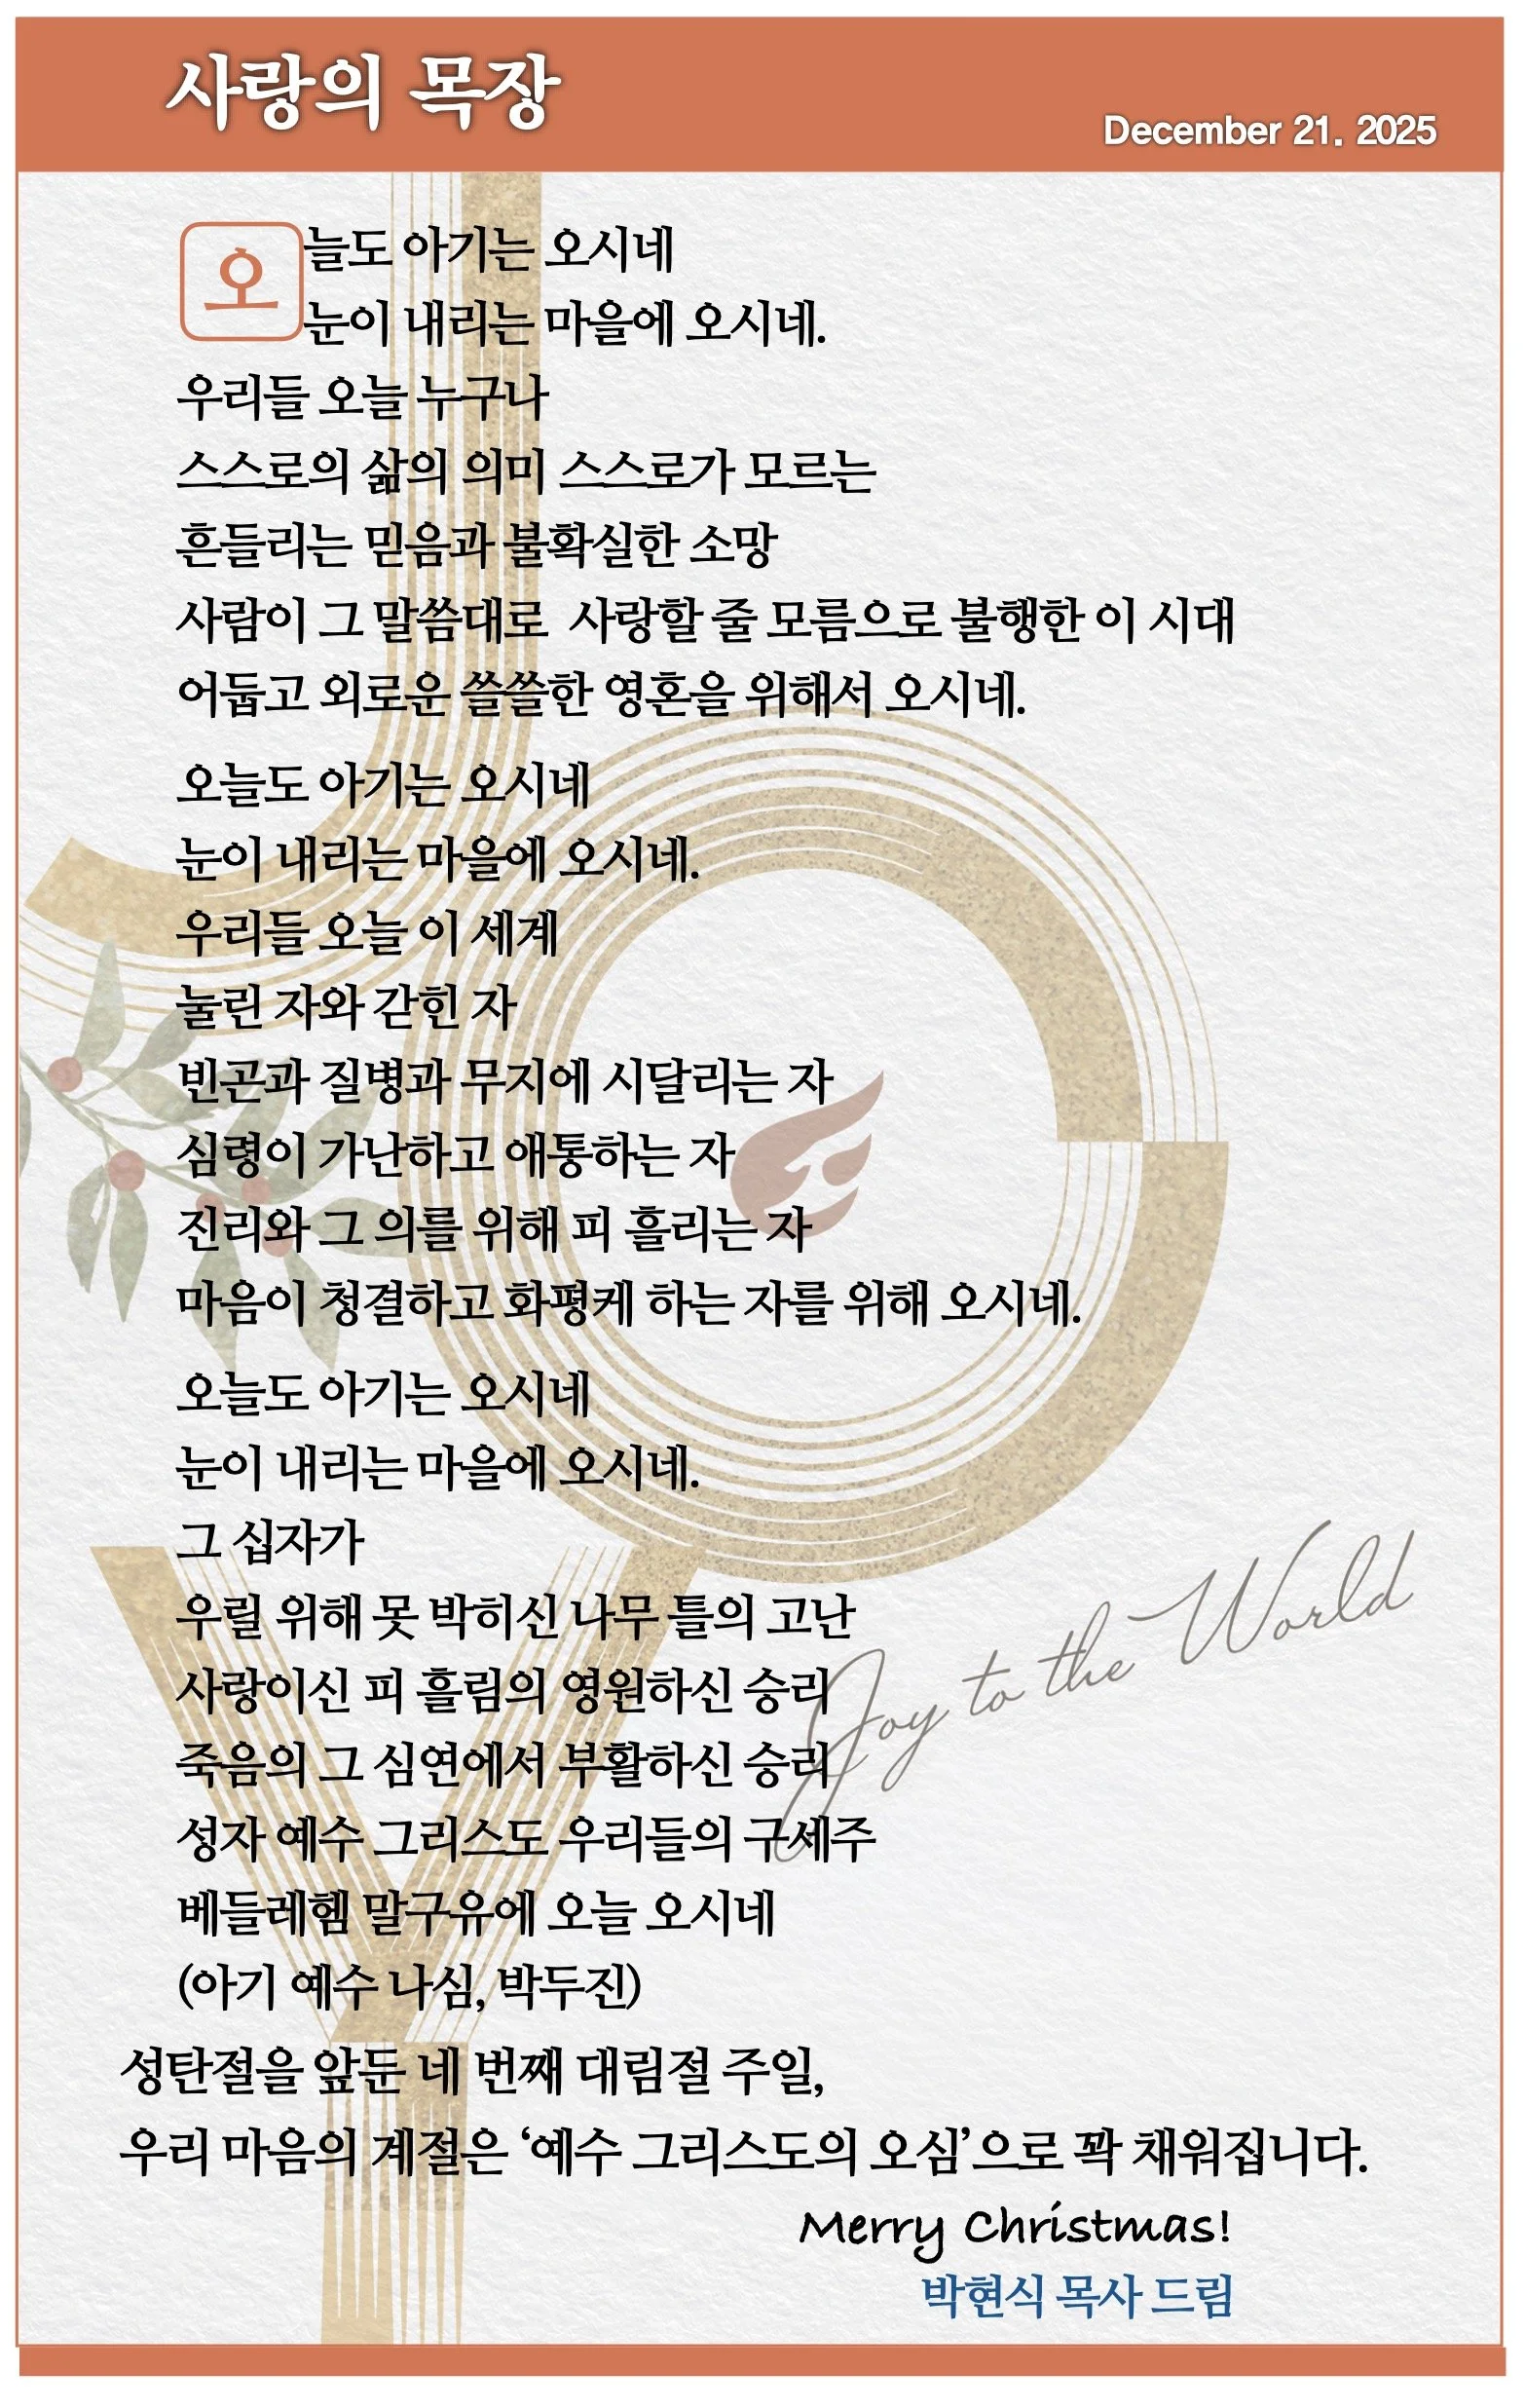 사랑의 목장
December 21. 2025
오늘도 아기는 오시네
눈이 내리는 마을에 오시네.
우리들 오늘 누구나
스스로의 삶의 의미 스스로가 모르는
흔들리는 믿음과 불확실한 소망
사람이 그 말씀대로 사랑할 줄 모름으로 불행한 이 시대
어둡고 외로운 쓸쓸한 영혼을 위해서 오시네.
오늘도 아기는 오시네
눈이 내리는 마을에 오시네.
우리들 오늘 이 세계
눌린 자와 갇힌 자
빈곤과 질병과 무지에 시달리는 자
심령이 가난하고 애통하는 자
진리와 그 의를 위해 피 흘리는 자
마음이 청결하고 화평케 하는 자를 위해 오시네.
오늘도 아기는 오시네
눈이 내리는 마을에 오시네.
그 십자가
우릴 위해 못 박히신 나무 틀의 고난
사랑이신 피 흘림의 영원하신 승리
죽음의 그 심연에서 부활하신 승리
성자 예수 그리스도 우리들의 구세주
베들레헴 말구유에 오늘 오시네
(아기 예수 나심, 박두진)
Joy to the World
성탄절을 앞둔 네 번째 대림절 주일,
우리 마음의 계절은 ‘예수 그리스도의 오심’으로 꽉 채워집니다.
Merry Christmas!
박현식 목사 드림
JOY